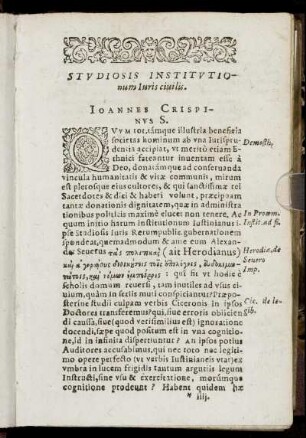 STVDIOSIS INSTITVTIO-
num Iuris ciuilis.
IOANNES CRISPI-
NVS S.
QVVM tot, támque illustria beneficia
societas hominum ab vna Iurispru-
dentia accipiat, vt meritò etiam E- Demosth.
thnici fateantur inuentam esse à
Deo, donatámque ad conseruanda
vincula humanitatis & vitæ communis, mirum
est plerosque eius cultores, & qui sanctissimæ rei
Sacerdotes & dici & haberi volunt, præcipuam
tantæ donationis dignitatem, quæ in administra
tionibus politicis maximè elucet non tenere. At In Proœm.
quum initio harum institutionum Iustinianus i- Instit. ad fi.
pse Studiosis Iuris Rerumpublic. gubernationem
spondeat, quemadmodum & ante eum Alexan-
der Seuerus (ait Herodianus) Herodia. de
Seuero
Imp.
: qui fit vt hodie è
scholis domum reuersi, tam inutiles ad vsus ci-
uium, quàm in statu mundi conspiciuntur? Præpo-
sterine studij culpam verbis Ciceronis in ipsos Cic. de le-
Doctores transferemus? qui, siue erroris obiicien gib.
di caussa, siue (quod verisimilius est) ignoratione
docendi, sæpe quod positum est in vna cognitio-
ne, id in infinita dispertiuntur? An ipsos potius
Auditores accusabimus, qui nec toto nec legiti-
mo opere perfecto (vt verbis Iustiniani vtar) ex
vmbra in lucem frigidis tantum argutiis legum
Instructi, sine vsu & exercitatione, morúmque
cognitione prodeunt? Habent quidem hæ
iiij.